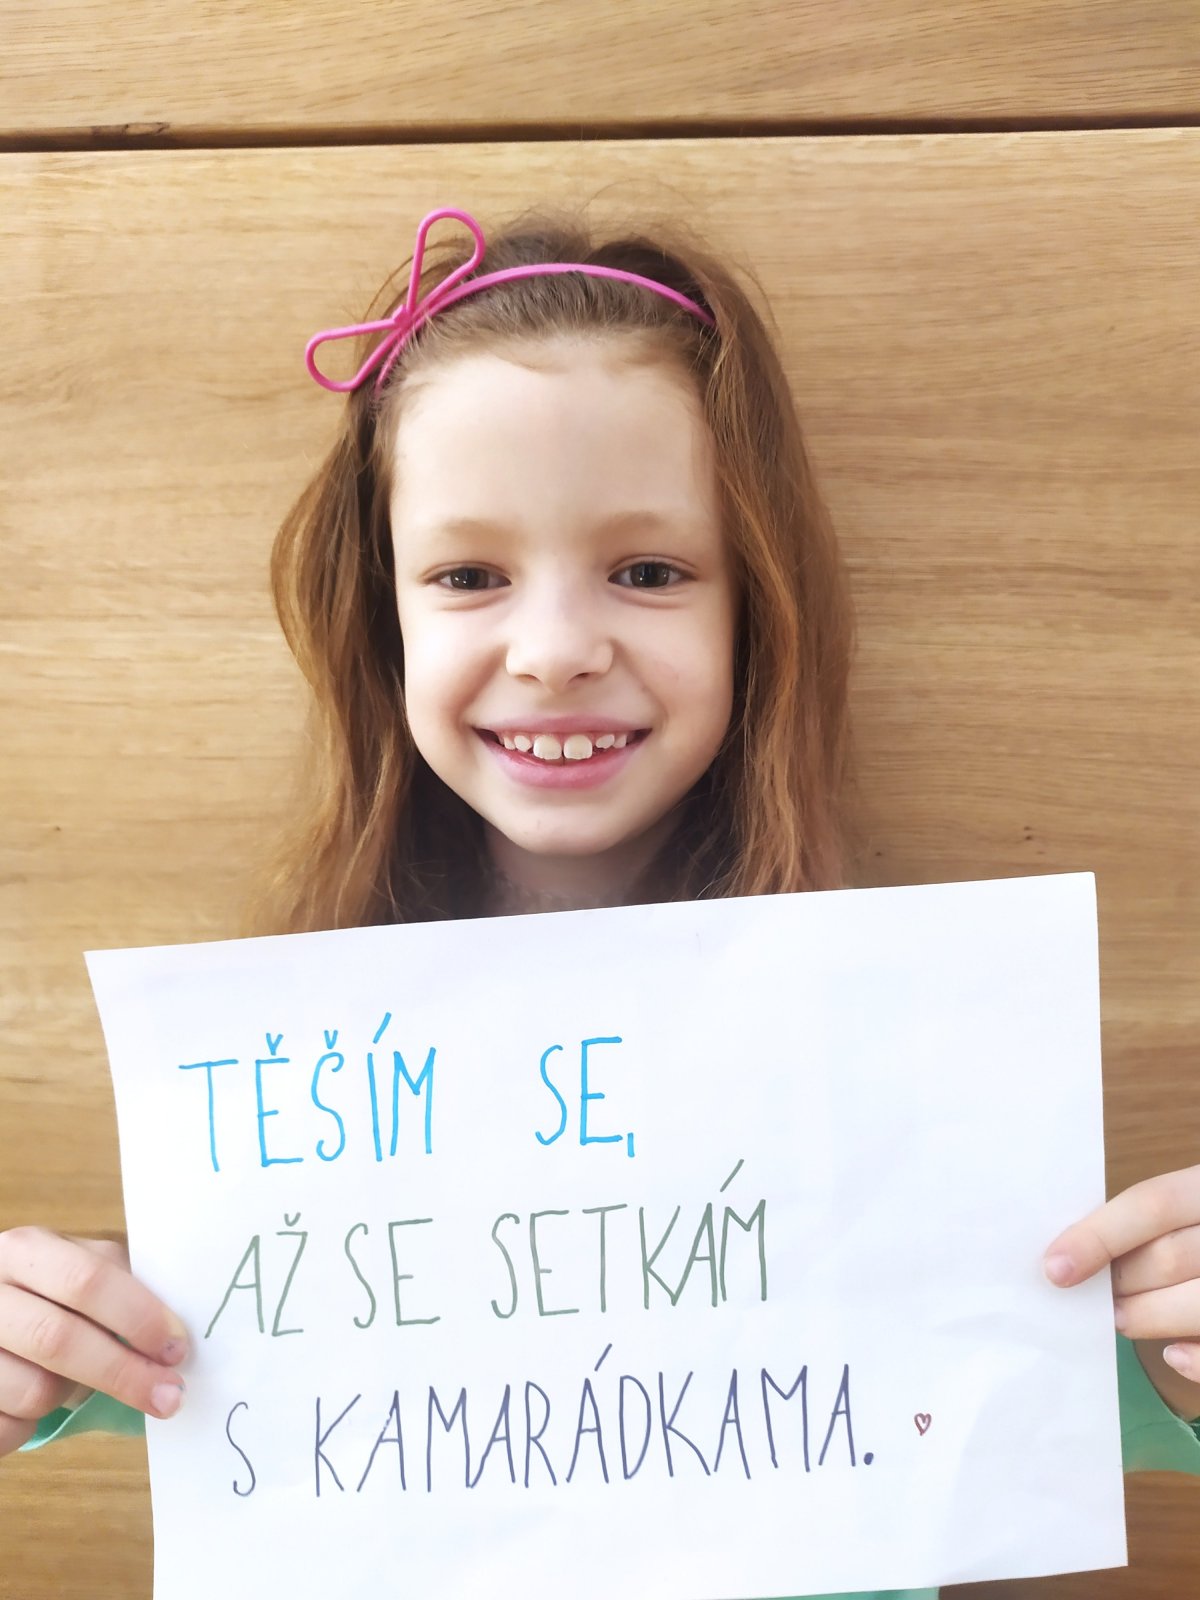 TĚŠÍM SE,
AŽ SE SETKÁM
S KAMARÁDKAMA.